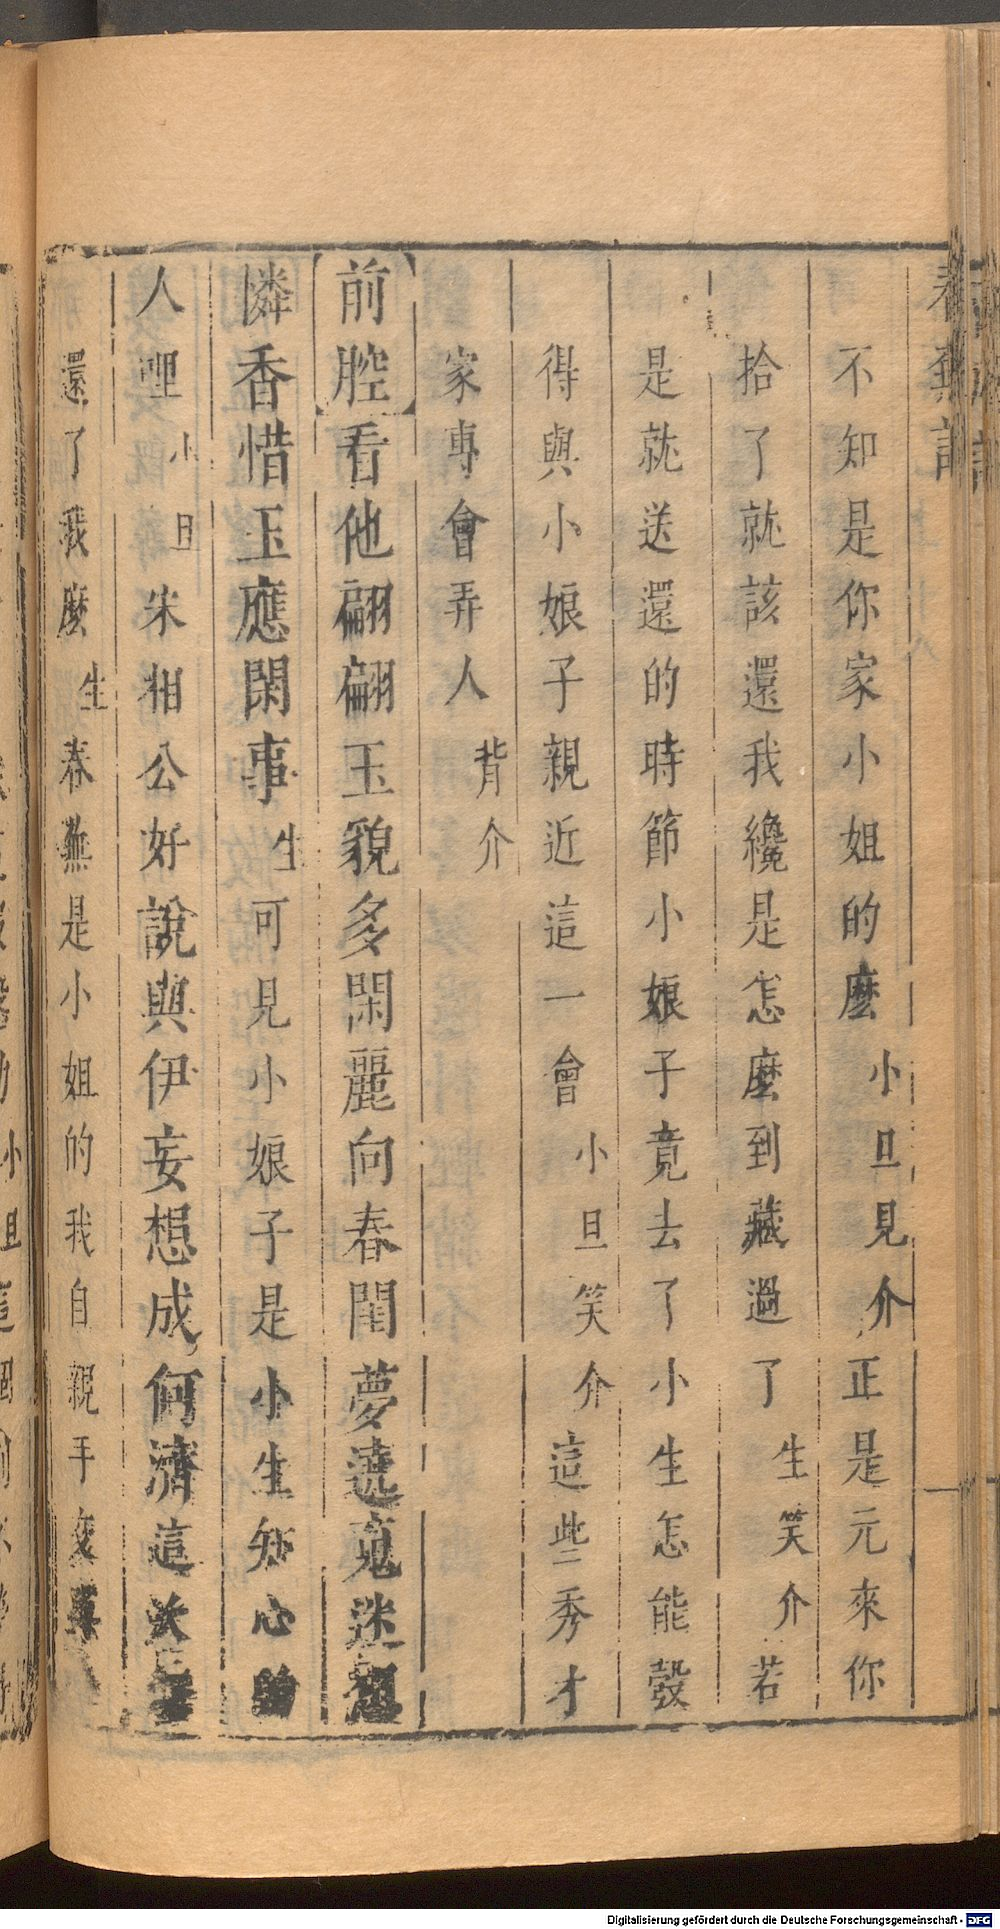 春蕪記
不知是你家小姐的麼小旦見介正是元來你
拾了就該還我纔是怎麼到藏過了生笑介若
是就送還的時節小娘子竟去了小生怎能彀
得與小娘子親近這一會小旦笑介這些秀才
家專會弄人背介
前腔看他翩翩玉貌多閑麗向春閨夢遶䰟迷
憐香惜玉應閑事生可見小娘子是小生知心的
人哩小旦宋相公好說與伊妄想成何濟這
還了我麼生春蕪是小姐的我自親手交
Digitalisierung gefördert durch die Deutsche Forschungsgemeinschaft - DFG